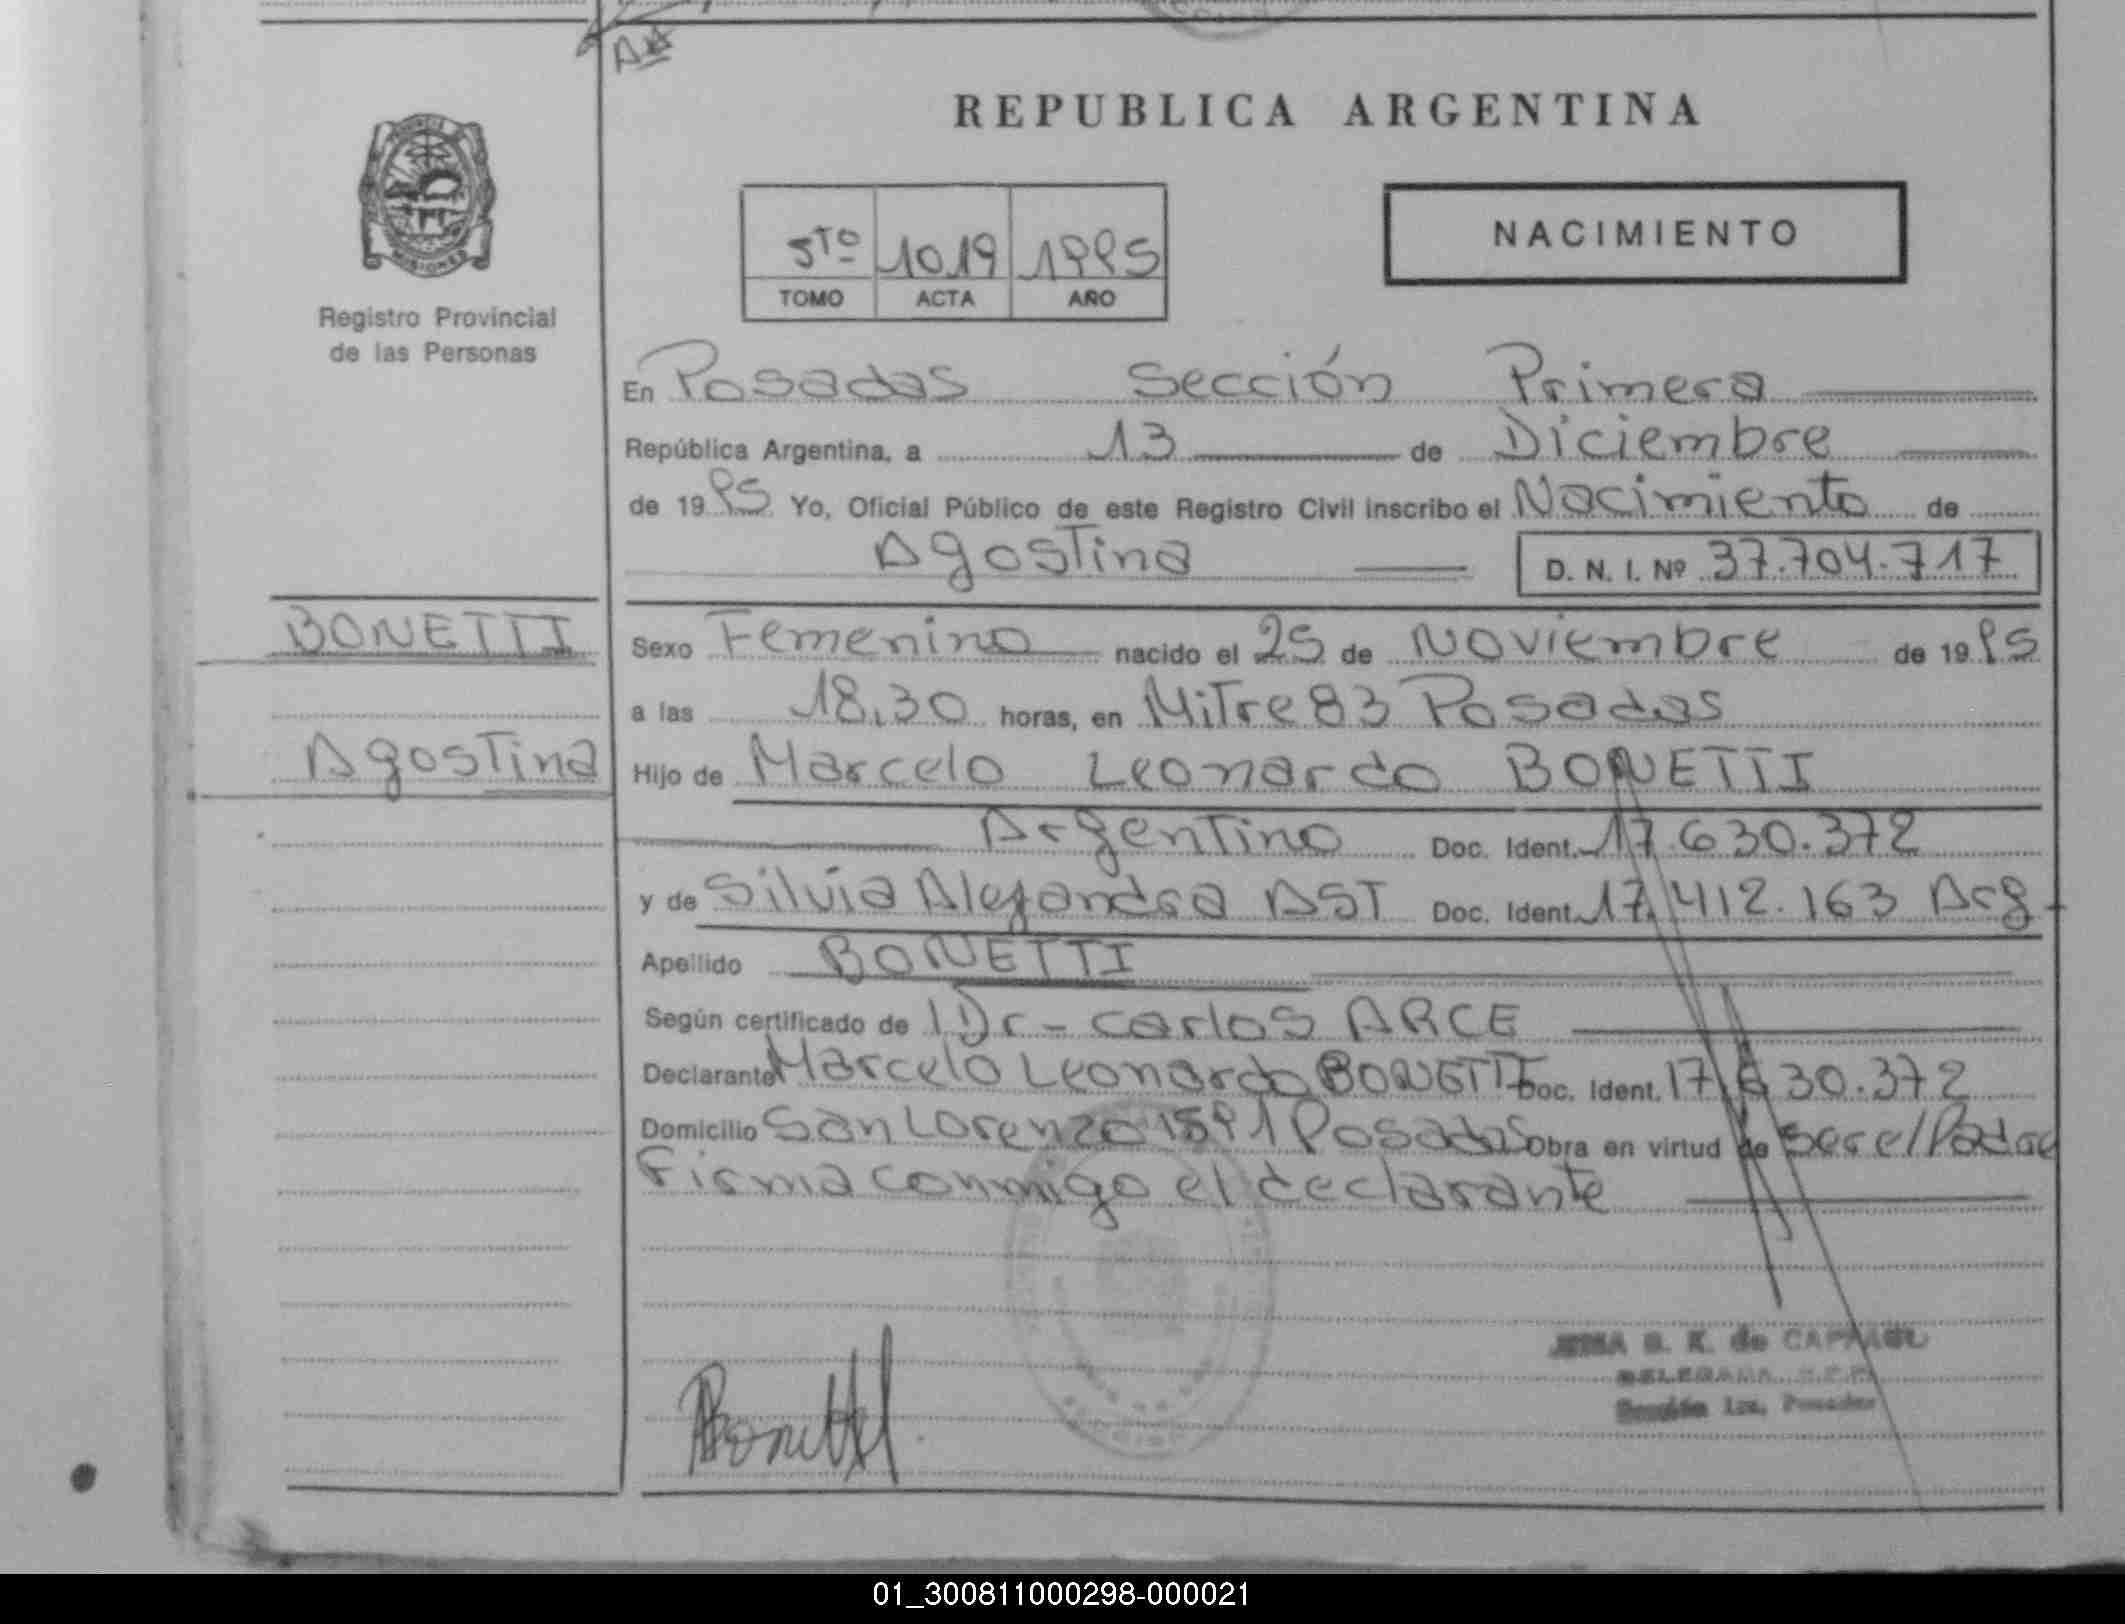 REPUBLICA ARGENTINA
MISIONES
Registro Provincial
de las Personas
5to 1019 1995
TOMO ACTA AÑO
NACIMIENTO
En Posadas Sección Primera
República Argentina, a 13 de Diciembre
de 1995 Yo, Oficial Público de este Registro Civil inscribo el Nacimiento de
Agostina D. N. I. Nº 37.704.717
BONETTI
Agostina
Sexo Femenino nacido el 25 de Noviembre de 1995
a las 18,30 horas, en Mitre 83 Posadas
Hijo de Marcelo Leonardo BONETTI
Argentino Doc. Ident. 17.630.372
y de Silvia Alejandra AST Doc. Ident. 17.412.163 Arg
Apellido BONETTI
Según certificado de Dr - Carlos ARCE
Declarante Marcelo Leonardo BONETTI Doc. Ident. 17.630.372
Domicilio San Lorenzo 1591 Posadas Obra en virtud de ser el Padre
Firma conmigo el declarante
Bonetti
S. K. de
01_300811000298-000021